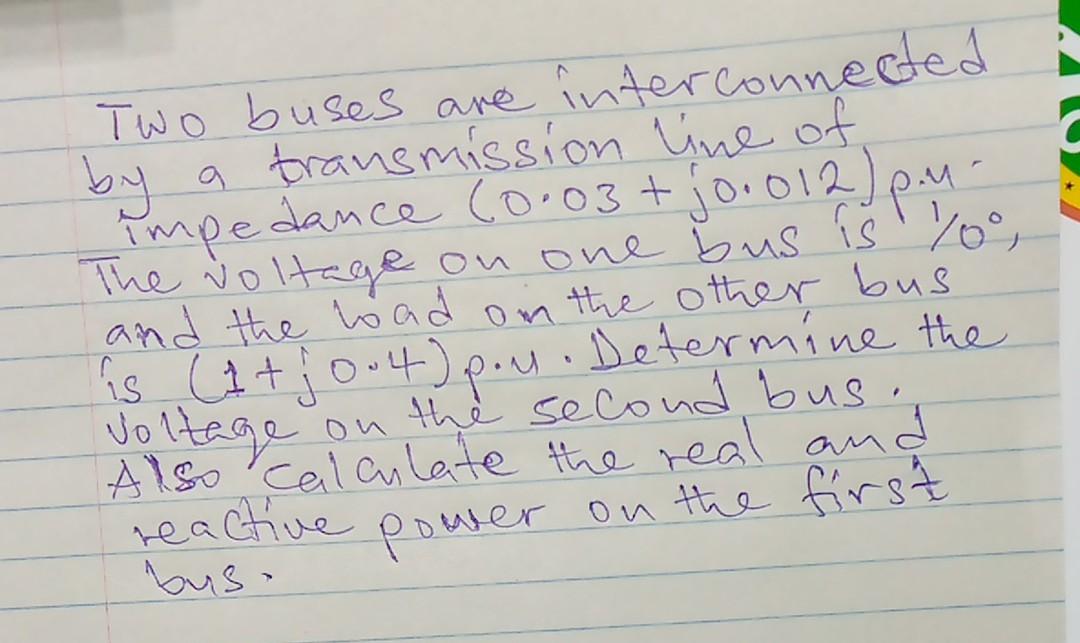 Two buses are interconnected
by a transmission line of
impedance (0.03 + j0.012) p.u.
The voltage on one bus is 1/0°,
and the load on the other bus
is (1+j0.4) p.u. Determine the
voltage on the second bus.
Also calculate the real and
reactive power on the first
bus.